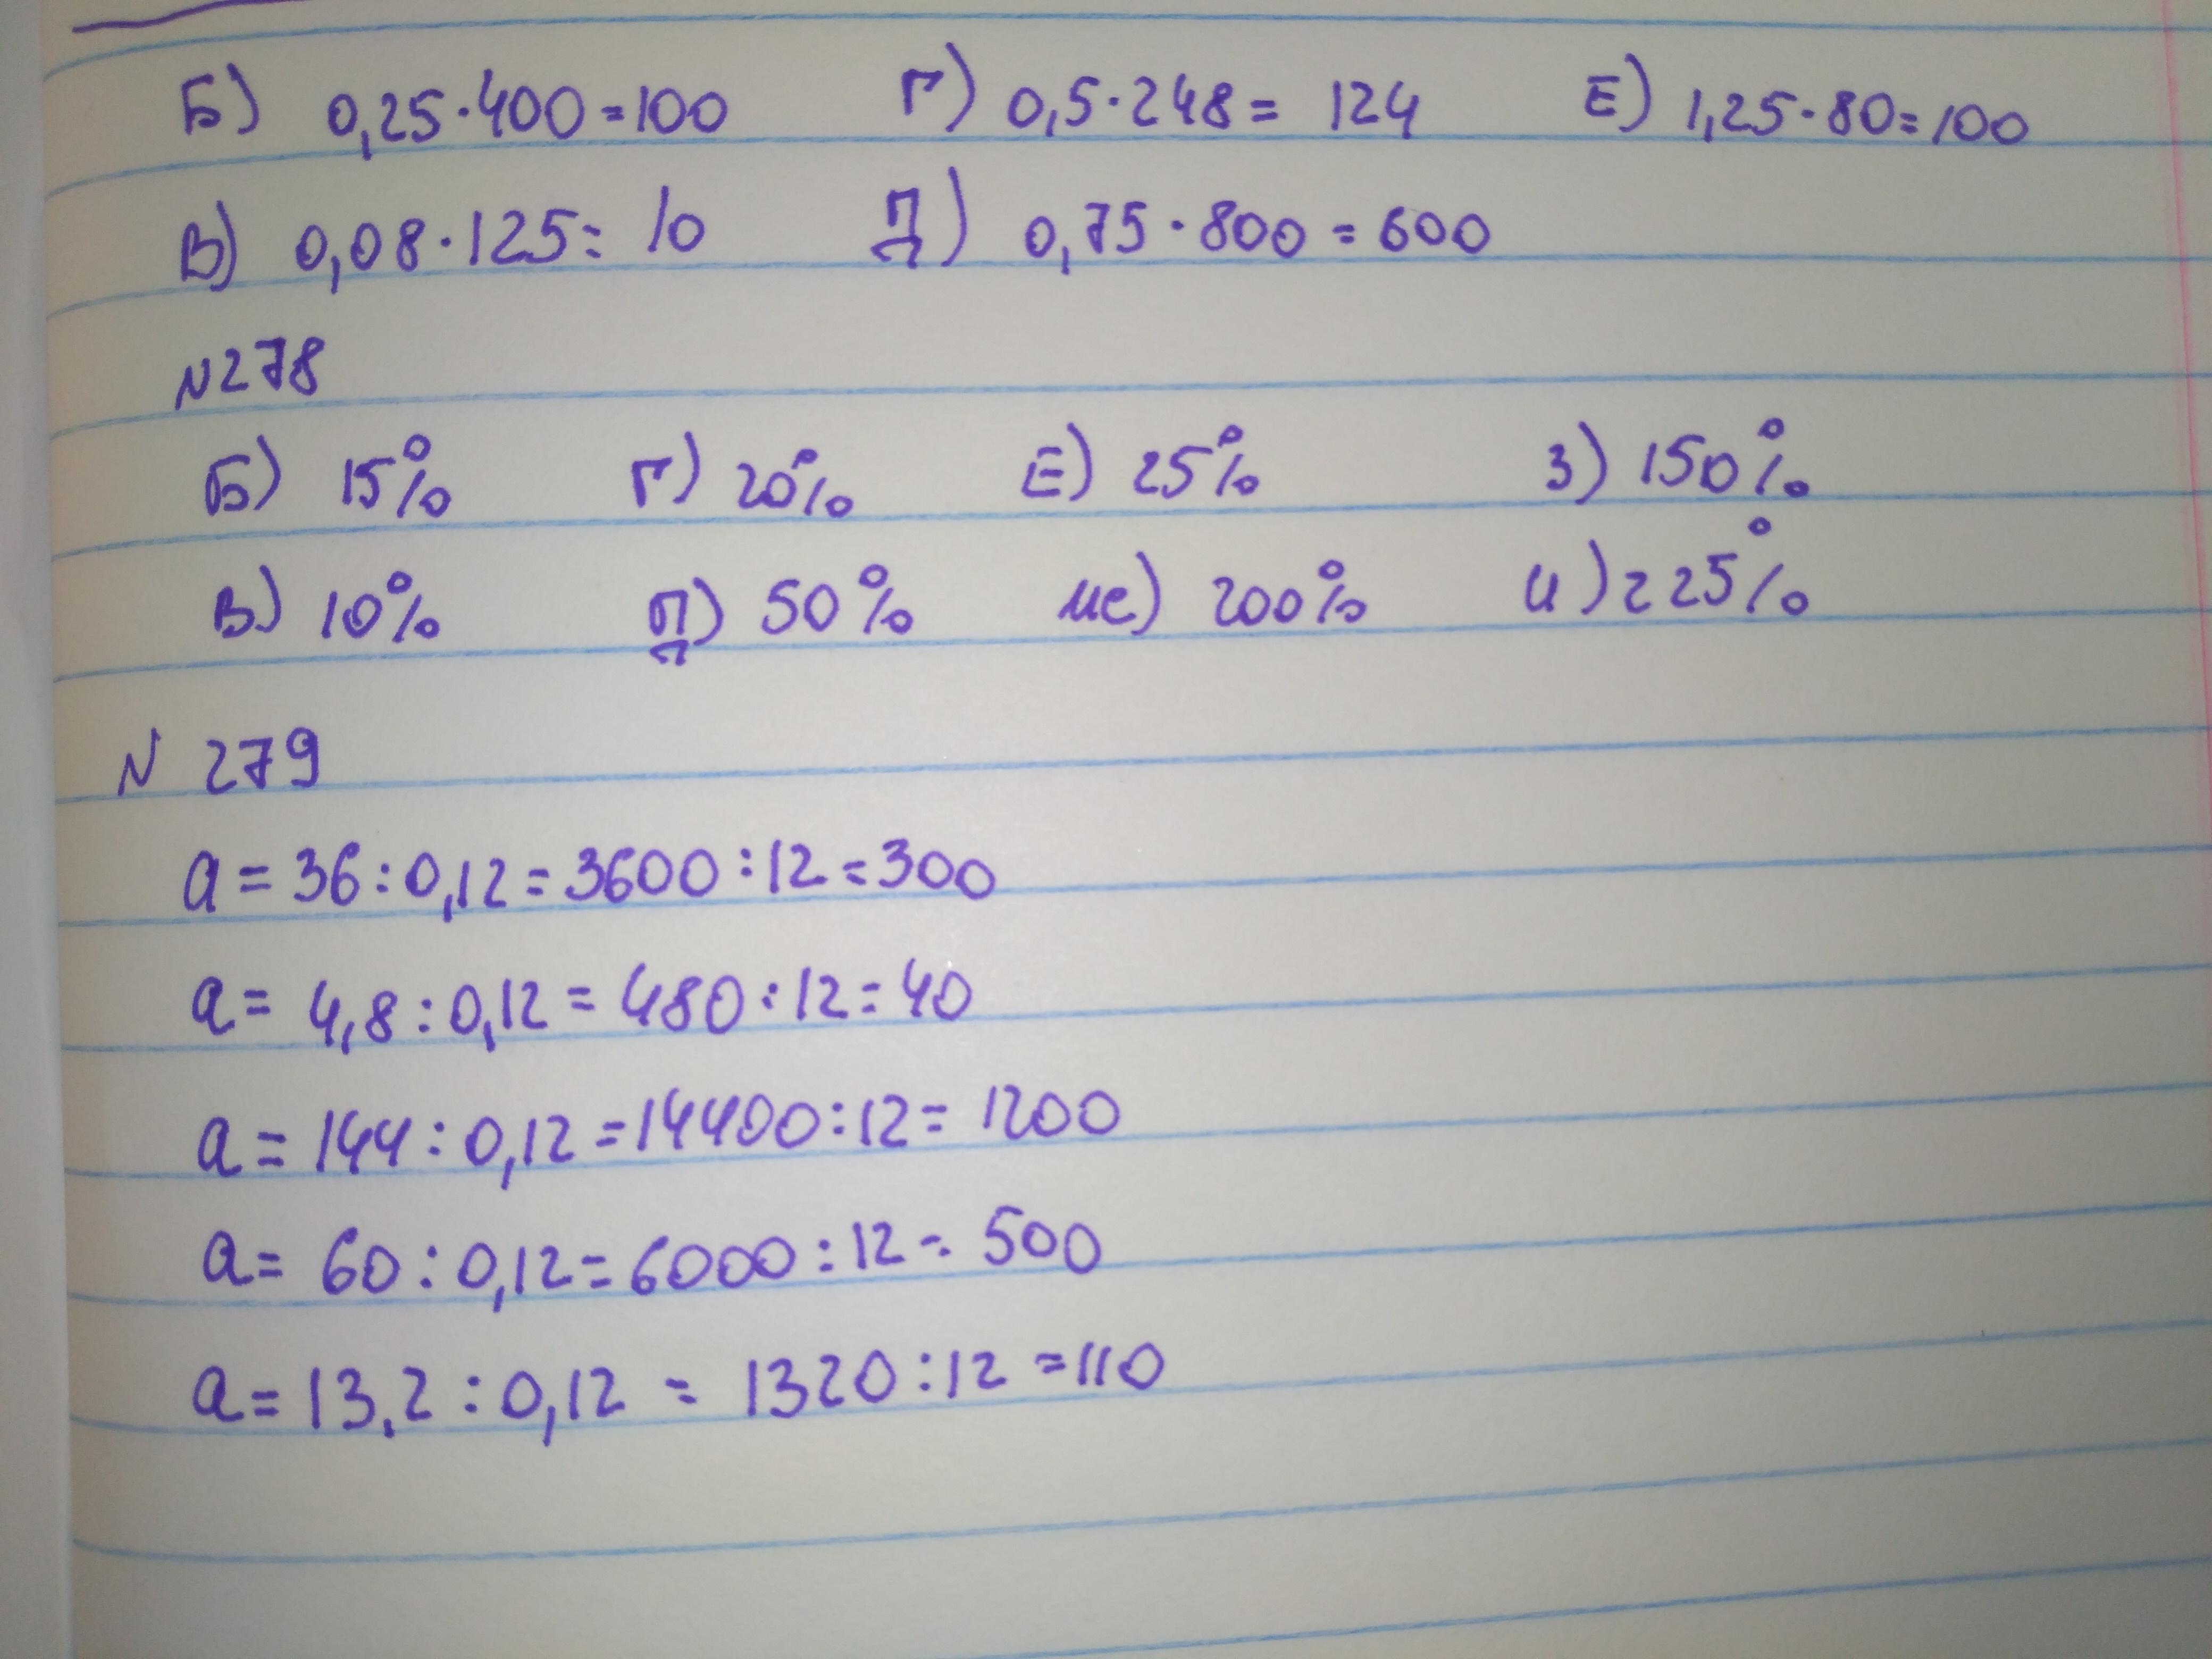 Б) 0,25·400=100 Г) 0,5·248= 124 Е) 1,25·80=100
В) 0,08·125= 10 Д) 0,75·800=600
N278
Б) 15% Г) 20% Е) 25% З) 150%
В) 10% Д) 50% Ж) 200% И) 225%
N 279
a=36:0,12=3600:12=300
a= 4,8:0,12=480:12=40
a=144:0,12=14400:12= 1200
a= 60:0,12=6000:12= 500
a=13,2:0,12 = 1320:12=110